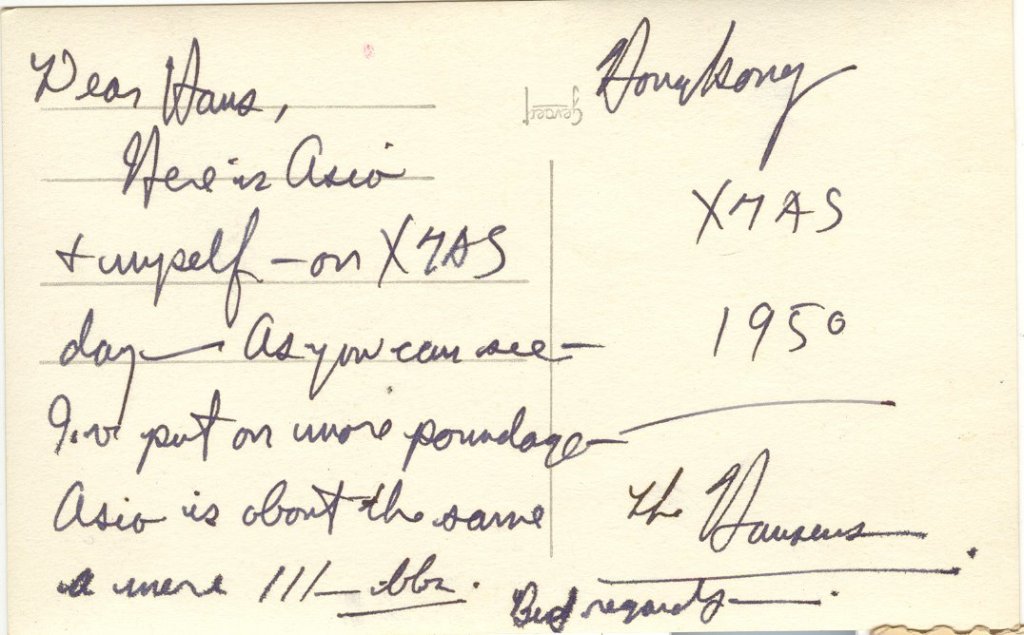 Dear Hans,
Here is Asio
+ myself - on XMAS
day - As you can see -
I've put on more poundage -
Asio is about the same
a mere 111 - lbs.
Hongkong
Gevaert
XMAS
1950
The Hansens
Best regards - .